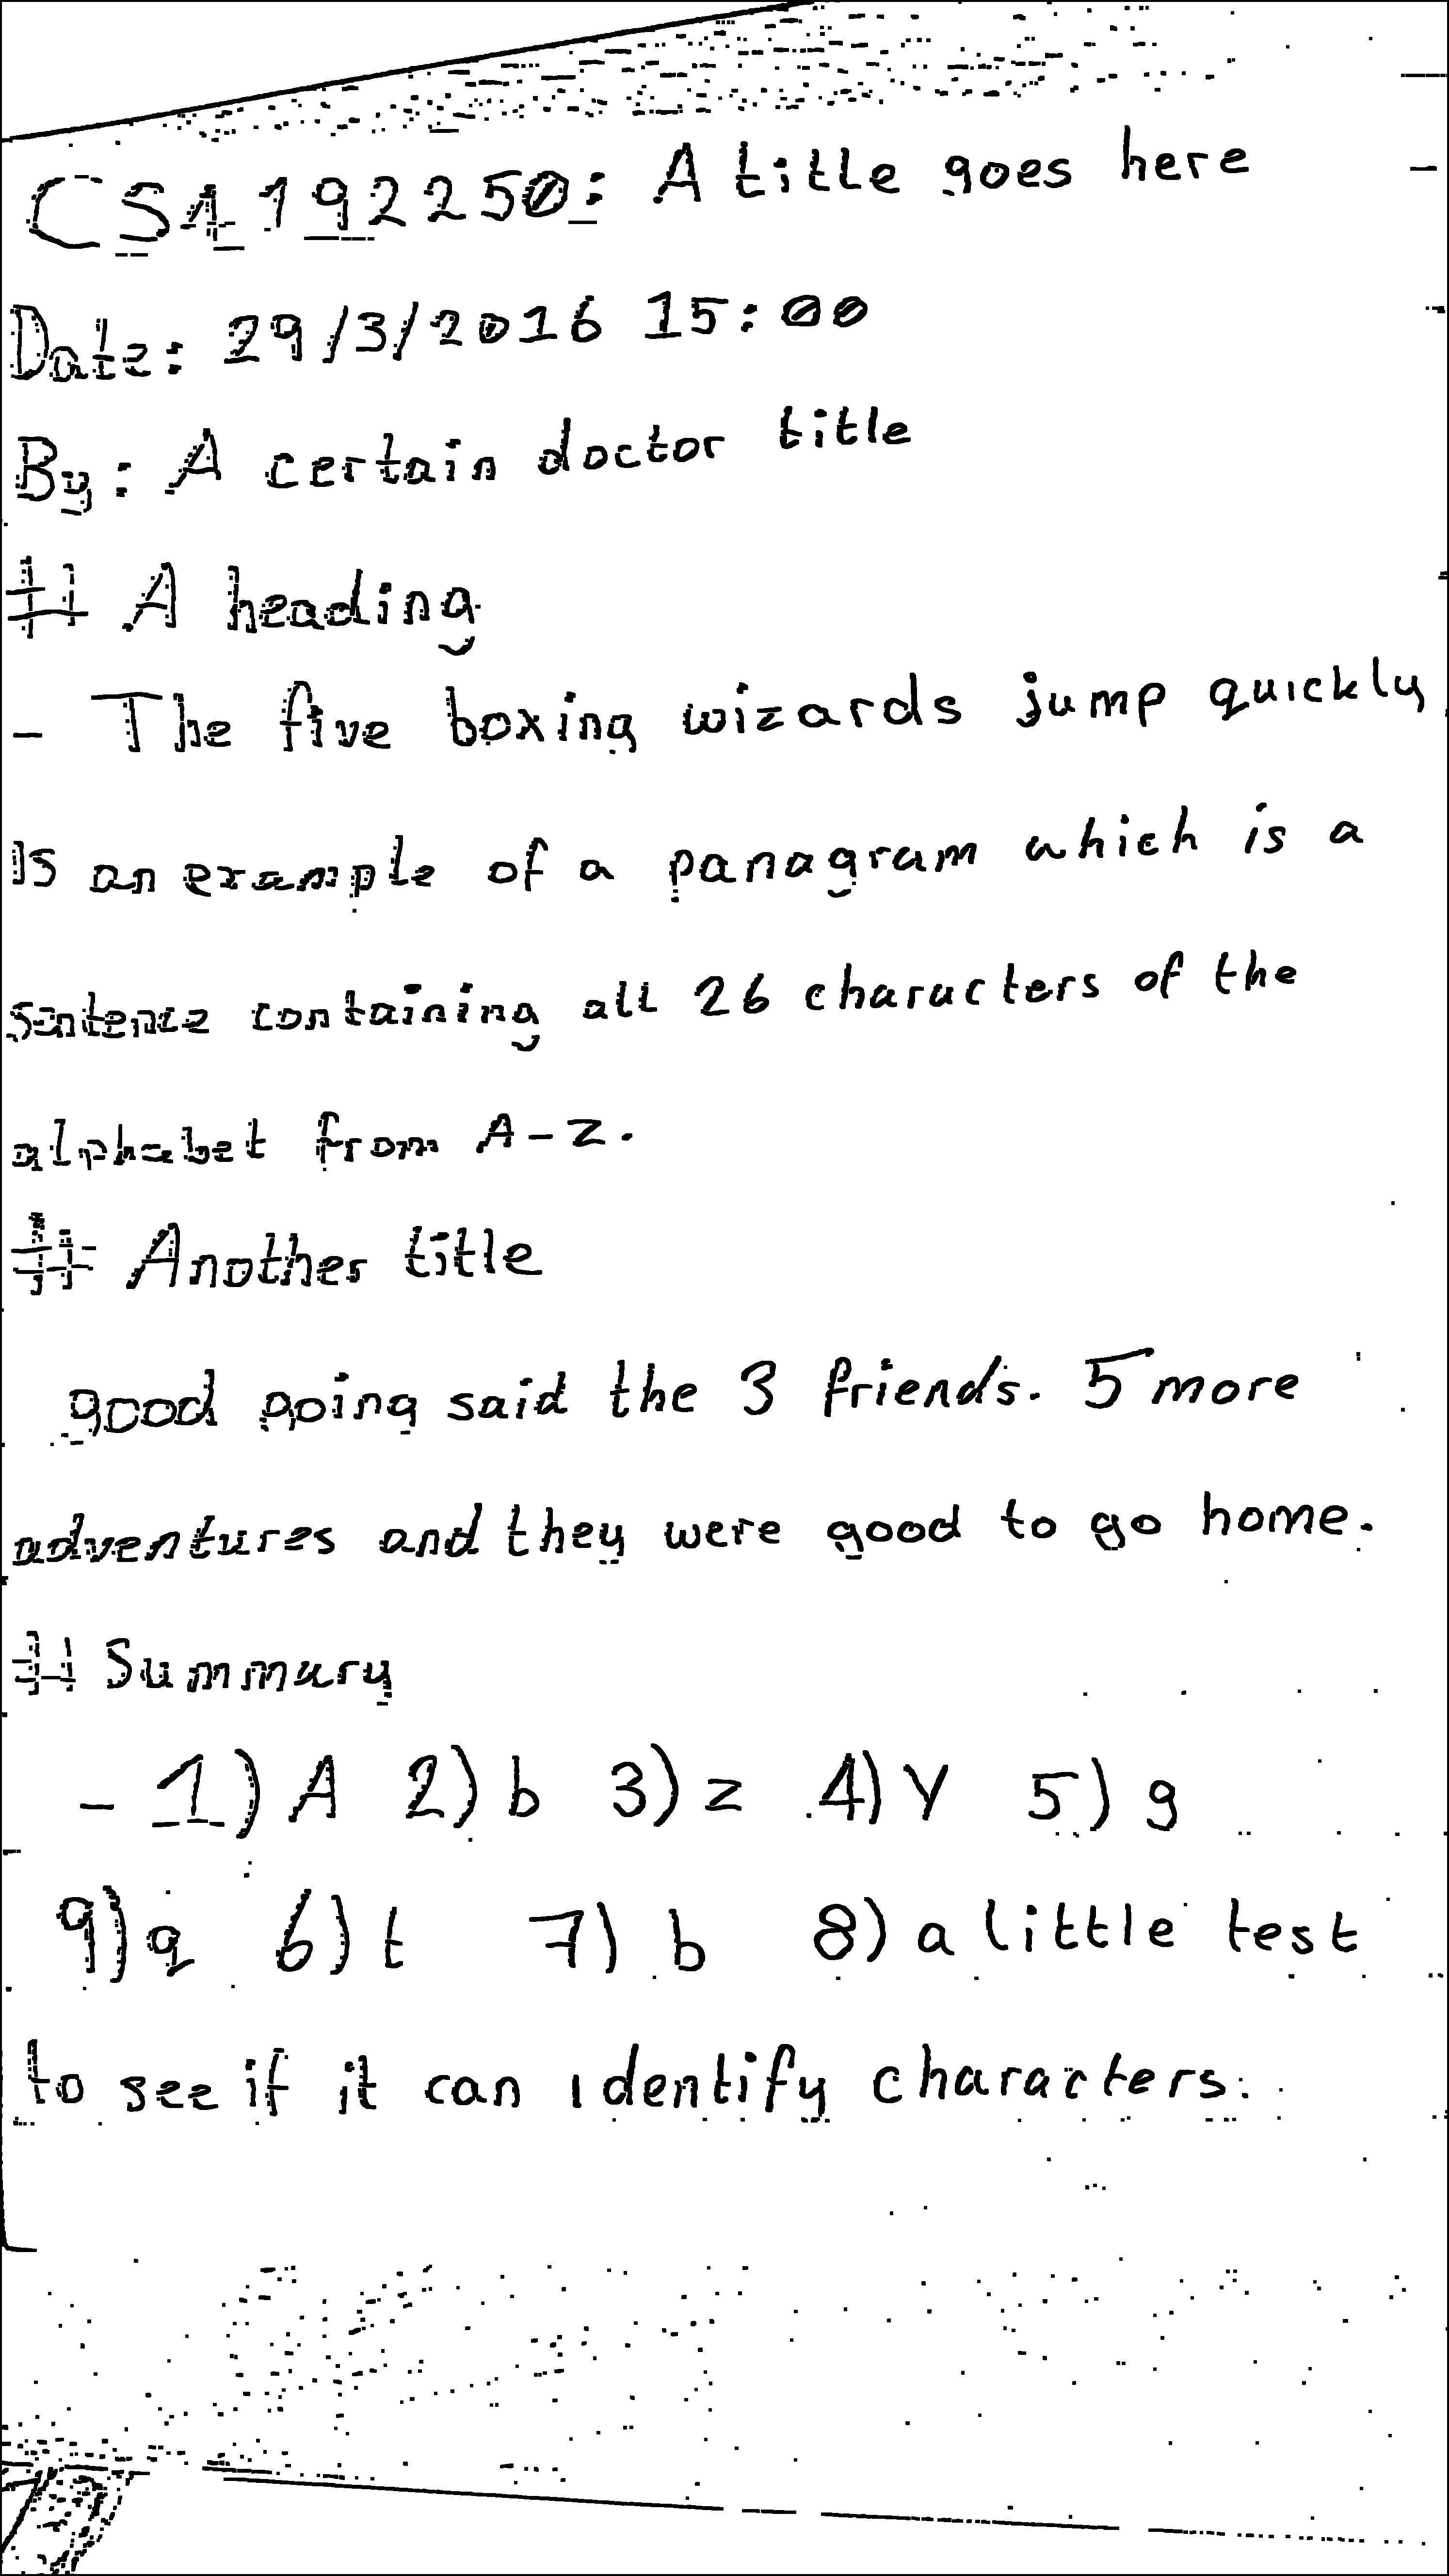 CS1192250: A title goes here
Date: 29/3/2016 15:00
By: A certain doctor title
# A heading
- The five boxing wizards jump quickly
is an example of a panagram which is a
sentence containing all 26 characters of the
alphabet from A-z.
# Another title
good going said the 3 friends. 5 more
adventures and they were good to go home.
# Summary
- 1) A 2) b 3) z 4) Y 5) g
9) q 6) t 7) b 8) a little test
to see if it can identify characters.